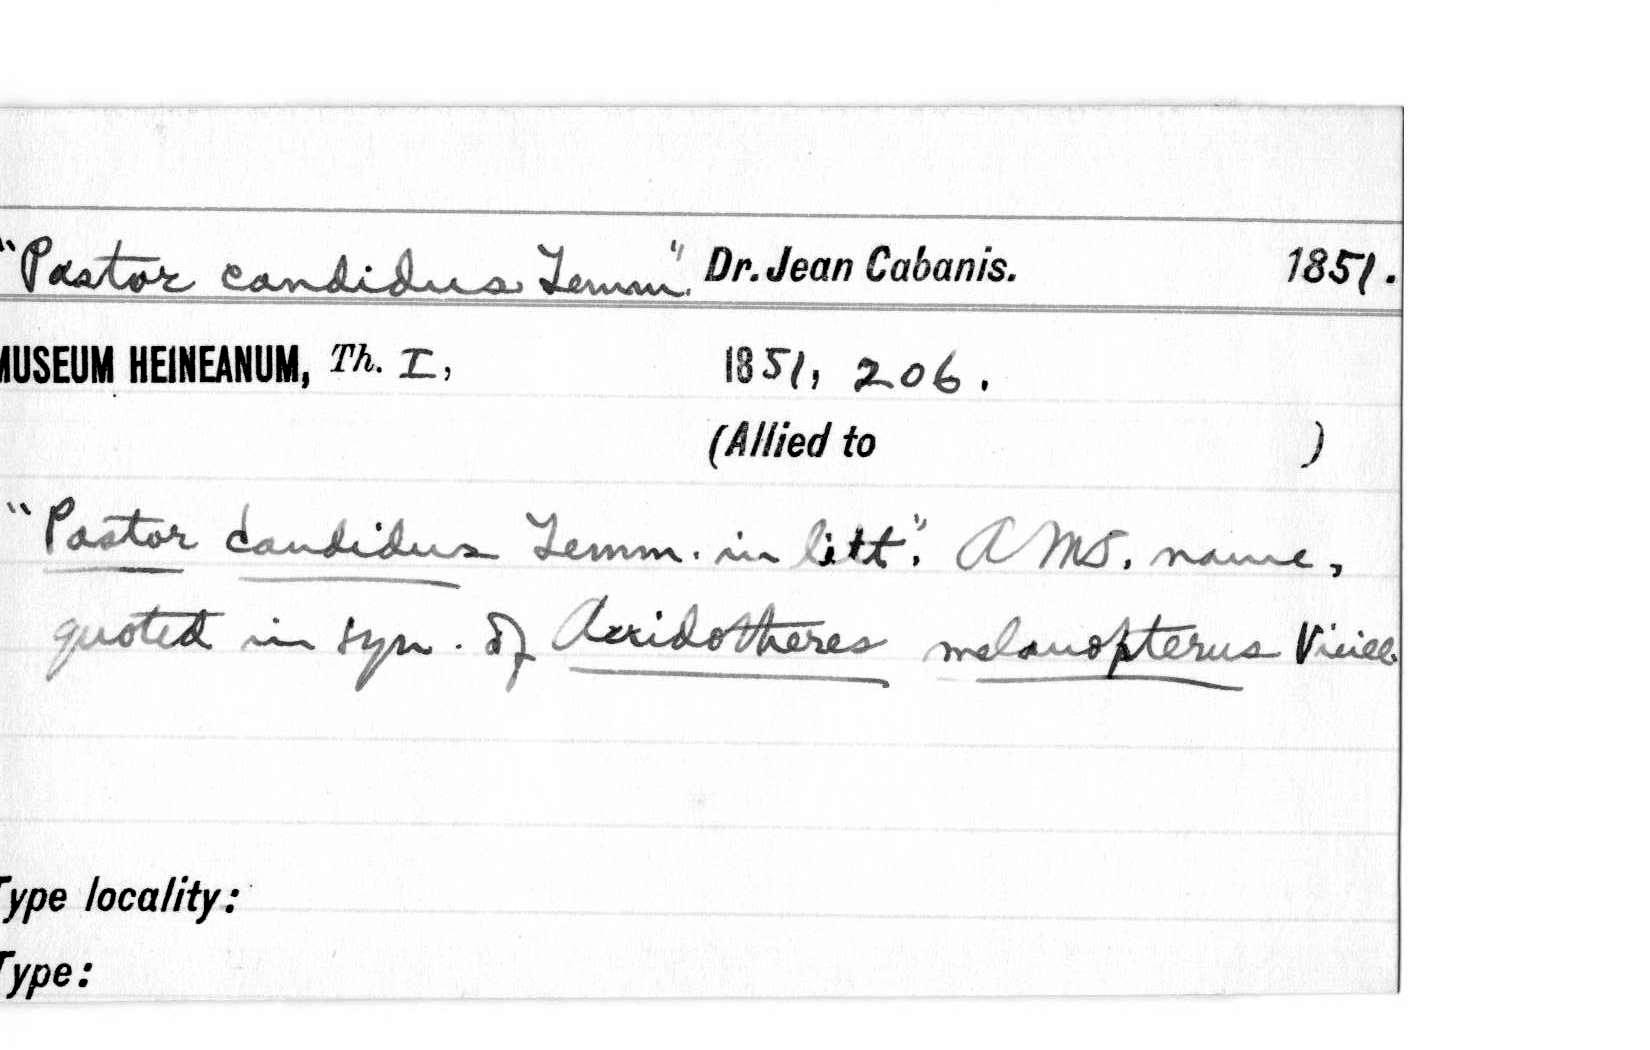 "Pastor candidus Temm." Dr. Jean Cabanis. 1851.
MUSEUM HEINEANUM, Th. I, 1851, 206.
(Allied to )
"Pastor candidus Temm. in litt." A MS. name,
quoted in syn. of Acridotheres melanopterus Vieill.
Type locality:
Type: